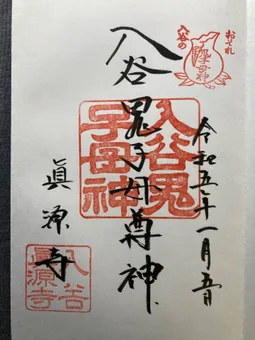 おそれ
入谷の
鬼子母神
令和五年十一月五日
入谷
鬼子母尊神
入谷鬼
子母神
眞源寺
入谷
眞源寺